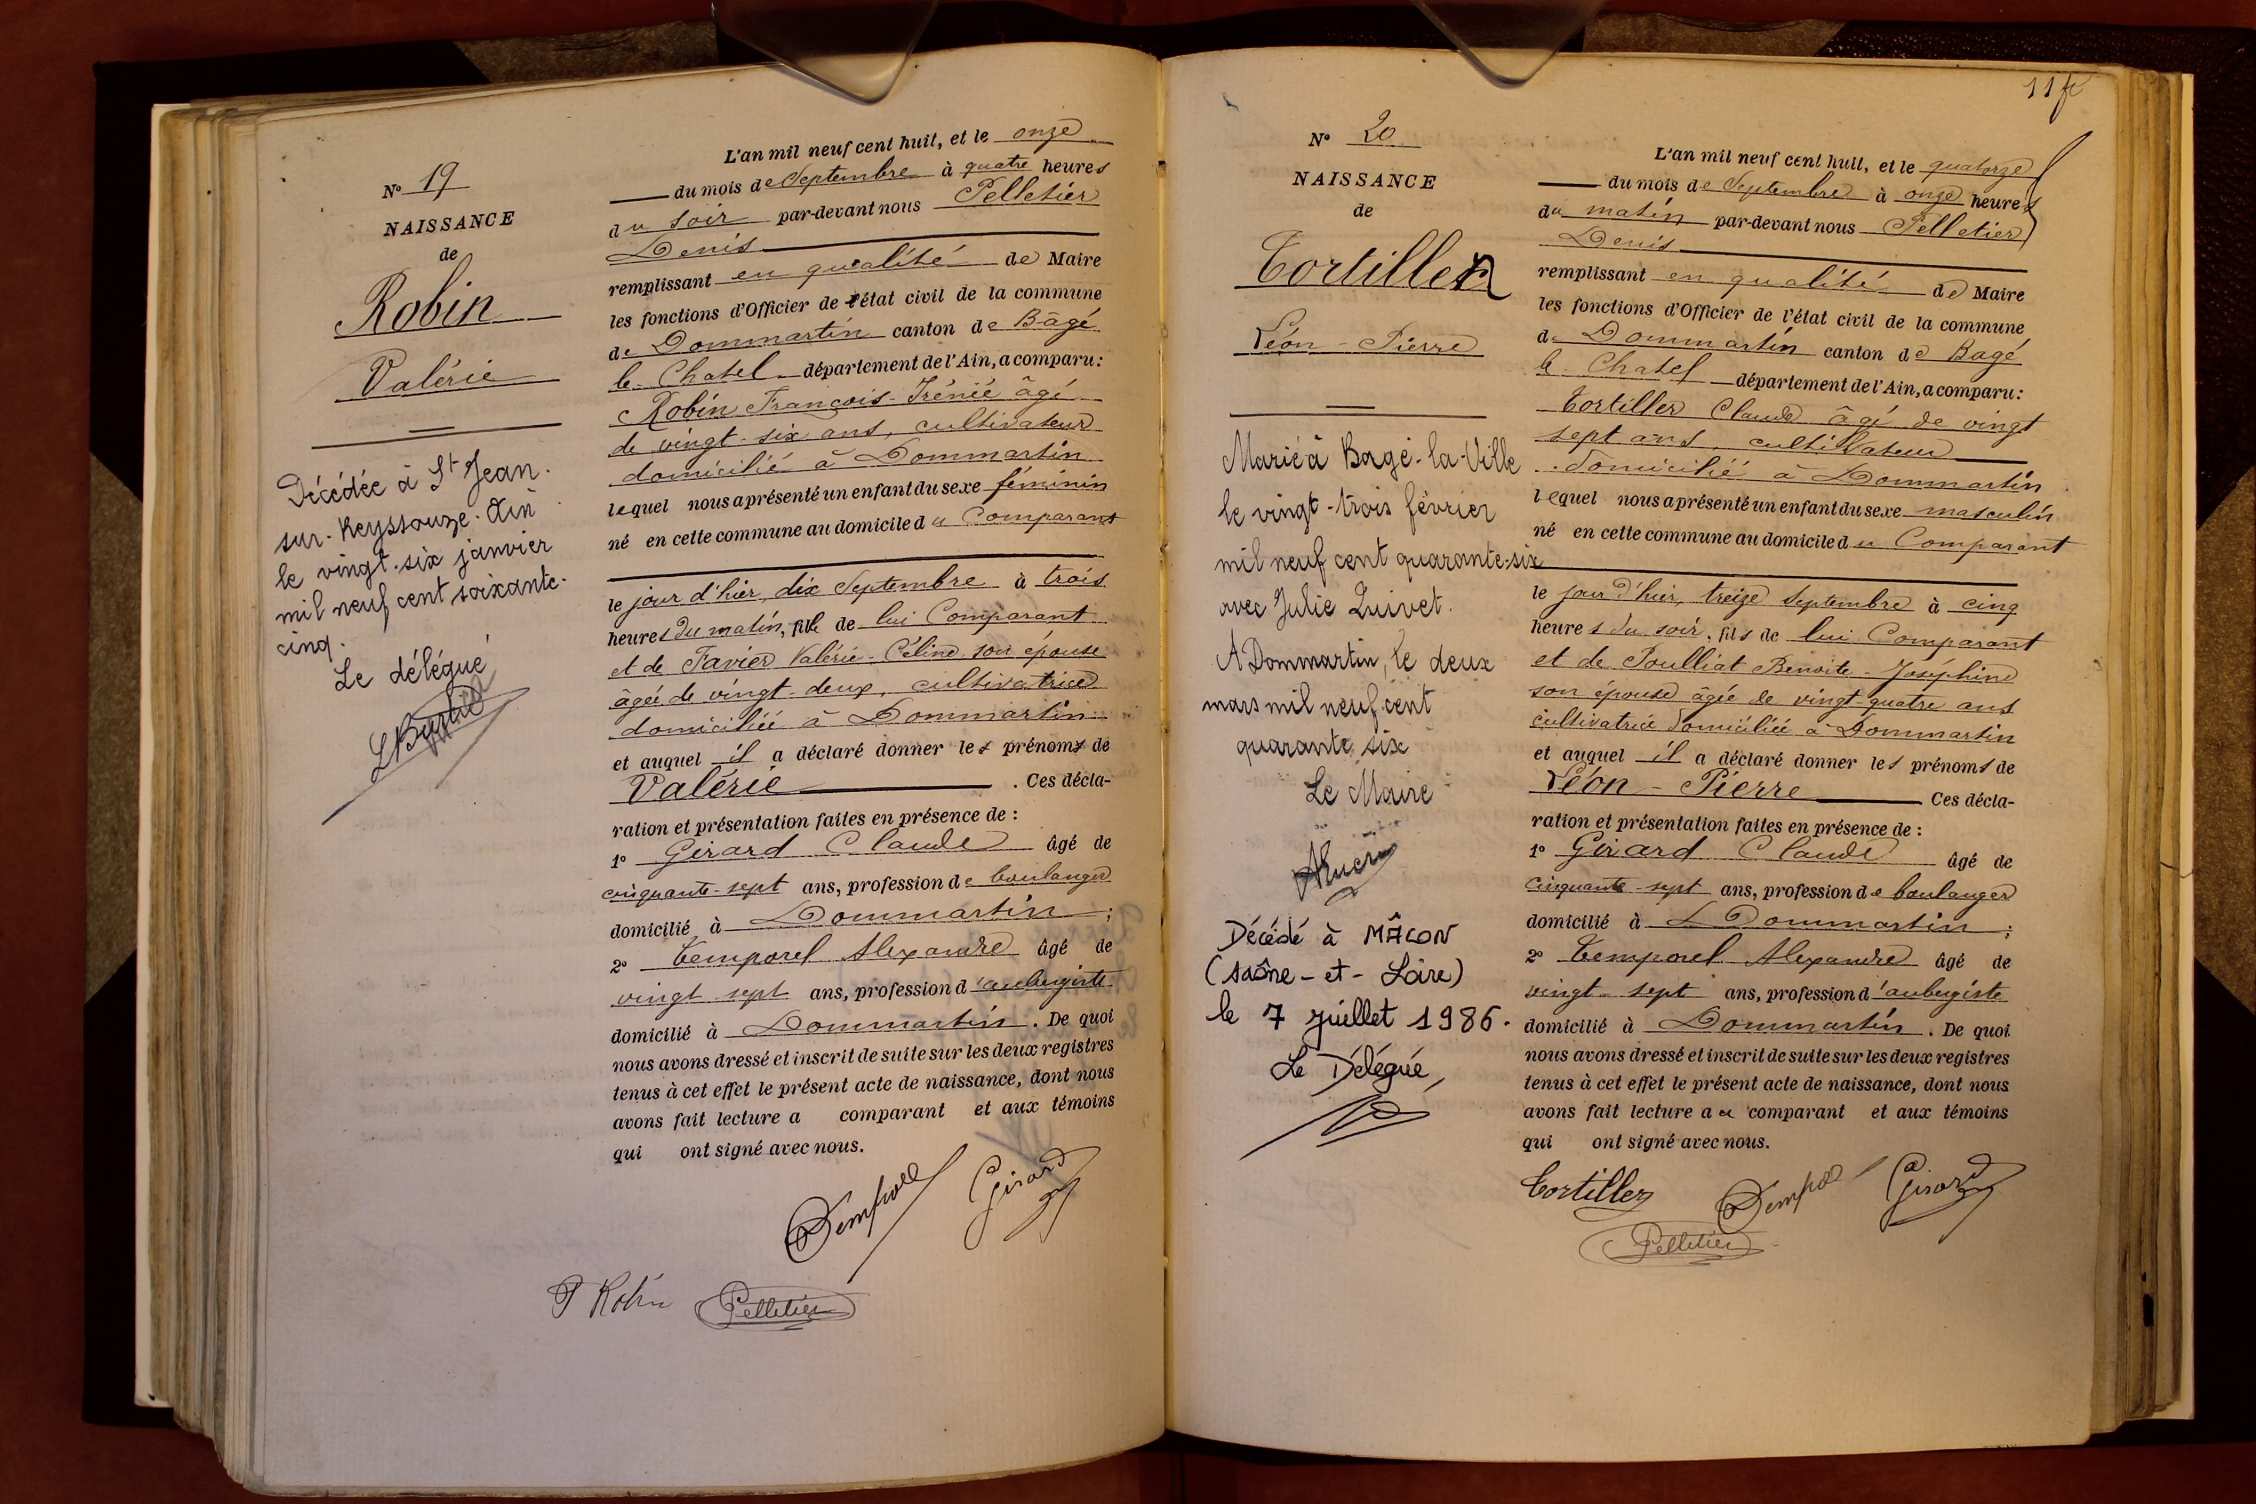 N° 19
NAISSANCE
de
Robin
Valérie
Décédée à St Jean.
sur-Reyssouze-Ain
le vingt-six janvier
mil neuf cent soixante-
cinq.
Le délégué
L'an mil neuf cent huit, et le onze
du mois de Septembre à quatre heures
du soir par-devant nous Pelletier
Denis
remplissant en qualité de Maire
les fonctions d'Officier de l'état civil de la commune
de Dommartin canton de Bâgé
le Chatel département de l'Ain, a comparu:
Robin François-Irénée âgé
de vingt-six ans, cultivateur
domicilié à Dommartin
lequel nous a présenté un enfant du sexe féminin
né en cette commune au domicile du Comparant
le jour d'hier, dix Septembre à trois
heures du matin, fille de lui Comparant
et de Favier Valérie-Céline son épouse
âgée de vingt-deux, cultivatrice
domiciliée à Dommartin
et auquel il a déclaré donner les prénoms de
Valérie . Ces décla-
ration et présentation faites en présence de :
1° Girard Claude âgé de
cinquante-sept ans, profession de boulanger
domicilié à Dommartin ;
2° Temporel Alexandre âgé de
vingt-sept ans, profession d'aubergiste
domicilié à Dommartin . De quoi
nous avons dressé et inscrit de suite sur les deux registres
tenus à cet effet le présent acte de naissance, dont nous
avons fait lecture a comparant et aux témoins
qui ont signé avec nous.
Girard
Robin Pelletier
11
N° 20
NAISSANCE
de
Tortiller
Léon-Pierre
Marié à Bagé-la-Ville
le vingt-trois février
mil neuf cent quarante-six
avec Julie Luivet.
A Dommartin, le deux
mars mil neuf cent
quarante six
Le Maire
Décédé à MÂCON
(Saône-et-Loire)
le 7 juillet 1986.
Le Délégué,
L'an mil neuf cent huit, et le quatorze
du mois de Septembre à onze heures
du matin par-devant nous Pelletier
Denis
remplissant en qualité de Maire
les fonctions d'Officier de l'état civil de la commune
de Dommartin canton de Bagé
le Chatel département de l'Ain, a comparu:
Tortiller Claude âgé de vingt
sept ans, cultivateur
domicilié à Dommartin
lequel nous a présenté un enfant du sexe masculin
né en cette commune au domicile du Comparant
le jour d'hier, treize Septembre à cinq
heures du soir, fils de lui Comparant
et de Poulliat Benoite-Joséphine
son épouse âgée de vingt-quatre ans
cultivatrice domiciliée à Dommartin
et auquel il a déclaré donner les prénoms de
Léon-Pierre Ces décla-
ration et présentation faites en présence de :
1° Girard Claude âgé de
cinquante-sept ans, profession de boulanger
domicilié à Dommartin ;
2° Temporel Alexandre âgé de
vingt-sept ans, profession d'aubergiste
domicilié à Dommartin . De quoi
nous avons dressé et inscrit de suite sur les deux registres
tenus à cet effet le présent acte de naissance, dont nous
avons fait lecture au comparant et aux témoins
qui ont signé avec nous.
Tortiller Girard
Pelletier